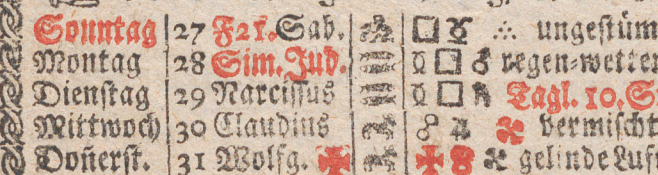 Sonntag 27 F21. Sab. □ ♉ ∴ ungestüm
Montag 28 Sim. Jud. ☿ □ ♂ regen-wetter
Dienstag 29 Narcissus ☿ □ Tagl. 10. S
Mittwoch 30 Claudius ☍ ♃ vermischt
Don̄erst. 31 Wolfg. ✠ gelinde Luft